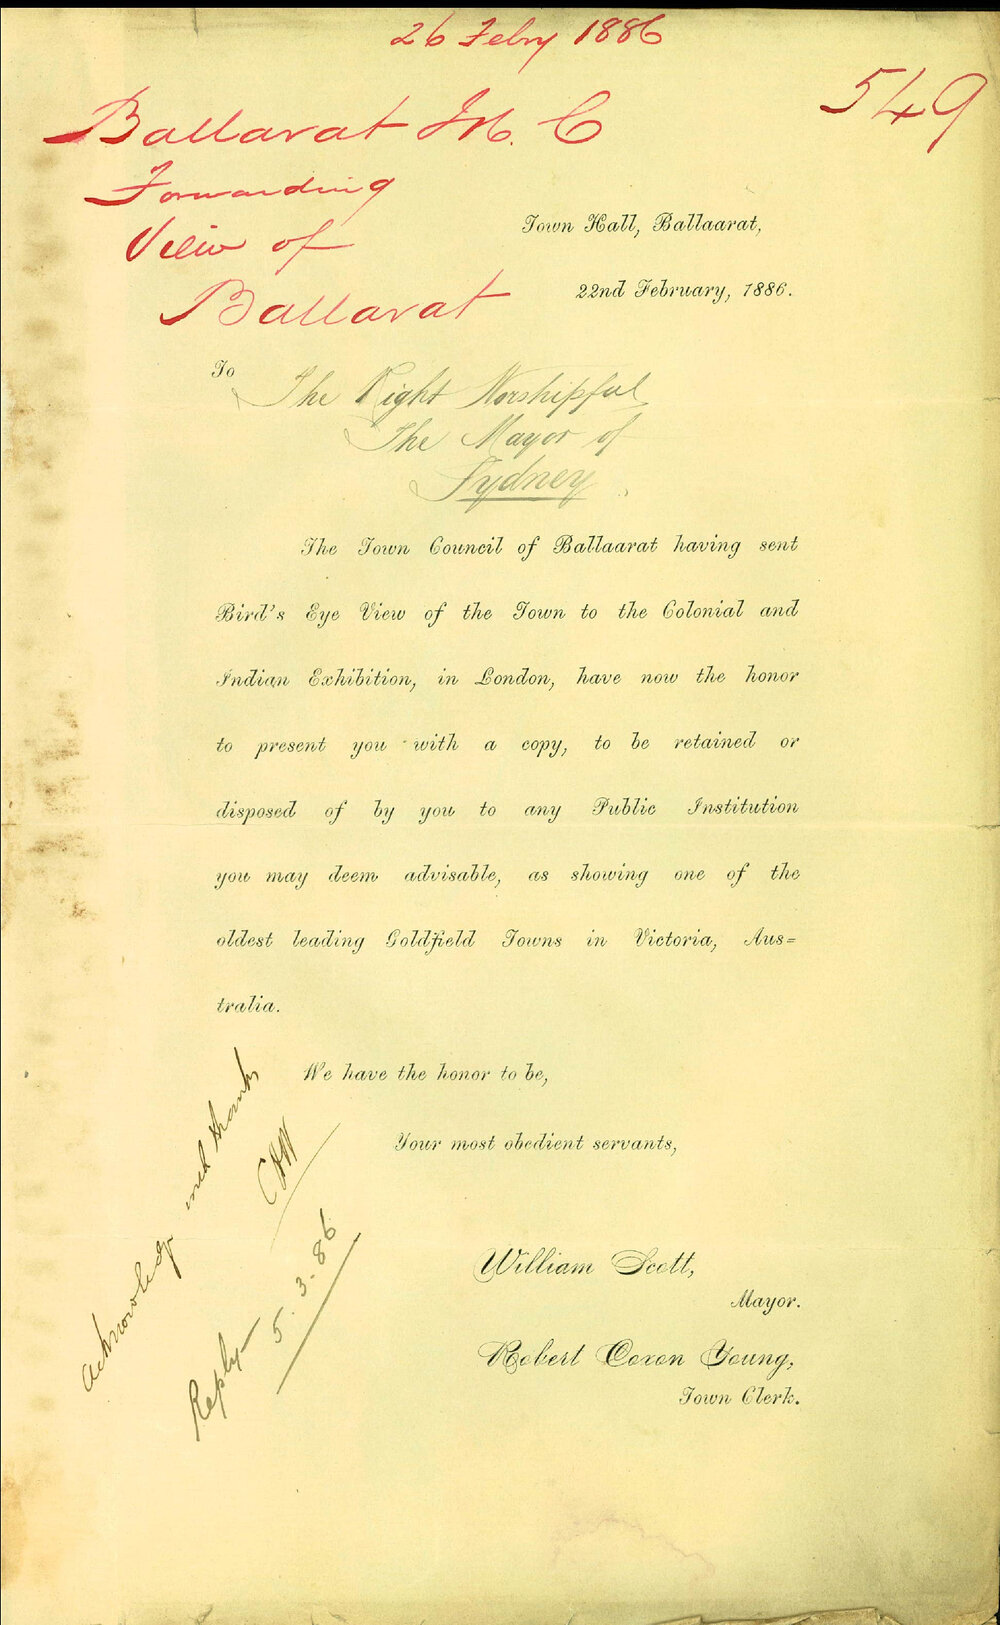 26 Febry 1886
549
Ballarat M. C
Forwarding
View of
Ballarat
Town Hall, Ballaarat,
22nd February, 1886.
To
The Right Worshipful
The Mayor of
Sydney.
The Town Council of Ballaarat having sent
Bird's Eye View of the Town to the Colonial and
Indian Exhibition, in London, have now the honor
to present you with a copy, to be retained or
disposed of by you to any Public Institution
you may deem advisable, as showing one of the
oldest leading Goldfield Towns in Victoria, Aus=
tralia.
We have the honor to be,
Your most obedient servants,
William Scott,
Mayor.
Robert Coxon Young,
Town Clerk.
Acknowledge with thanks
Reply
5.3.86